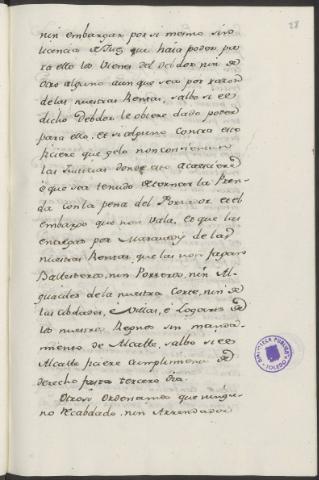 28
nin embargar por si mismo sin
licencia de Juez que haia poder pa
ra ello los vienes del Debdor nin de
otro alguno aunque sea por razon
de las nuestras Rentas, salbo si el
dicho Debdor le obiere dado poder
para ello, et si alguno contra esto
ficiere que gelo non consientan
las Justicias donde esto acaesciere
é que sea tenudo de tornar la Pren
da con la pena del et el
embargo que non vala, et que las
entregas por Maravedis de las
nuestras Rentas que las non fagan
Ballesteros, nin Porteros, nin Al
guaciles de la nuestra Corte, nin de
las cibdades, é Villas, é Logares de
los nuestros Regnos sin manda
miento de Alcalle, salbo si el
Alcalle ficiere cumplimiento de
derecho fasta tercero dia.
Otrosi Ordenamos que ningu
no Recabdador, nin Arrendador
BIBLIOTECA PUBLICA
TOLEDO